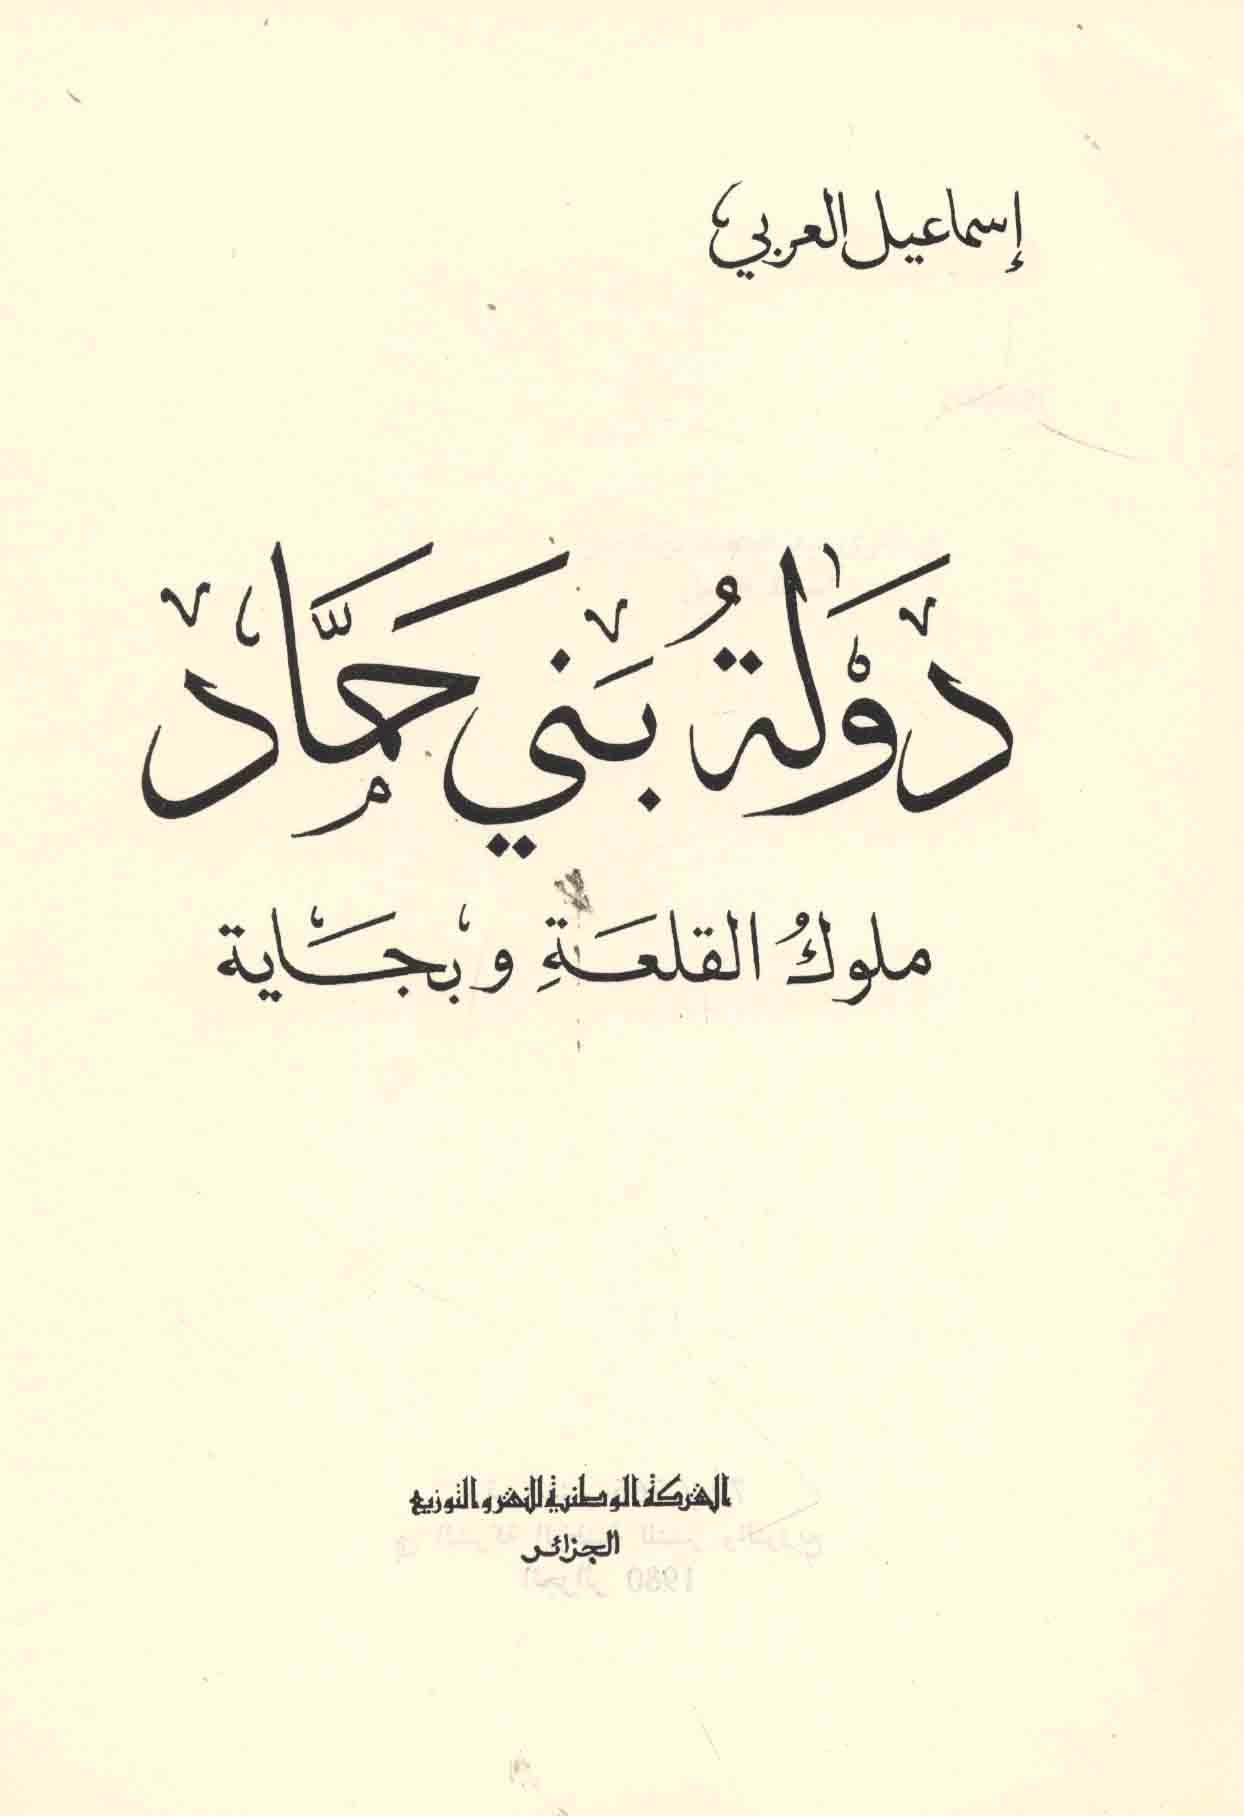 إسماعيل العربي
دَوْلَةُ بَني حَمَّاد
ملوكُ القلعَةِ وبجَاية
الشركة الوطنية للنشر والتوزيع
الجزائر